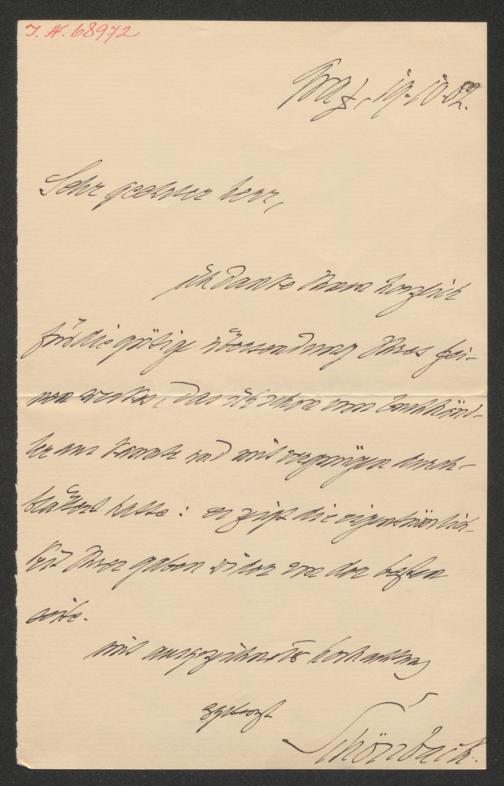 I. N. 68972
Graz, 19.10.02.
Sehr geehrter herr,
ich danke ihnen herzlich
für die gütige übersendung Ihres fei-
nen werkes, das ich schon vom buchhänd-
ler aus kannte und mit vergnügen durch-
blättert hatte: es zeigt die eigentümlich-
keit Ihrer gaben wider von der besten
seite.
mit ausgezeichneter hochachtung
ergebenst
Schönbach.